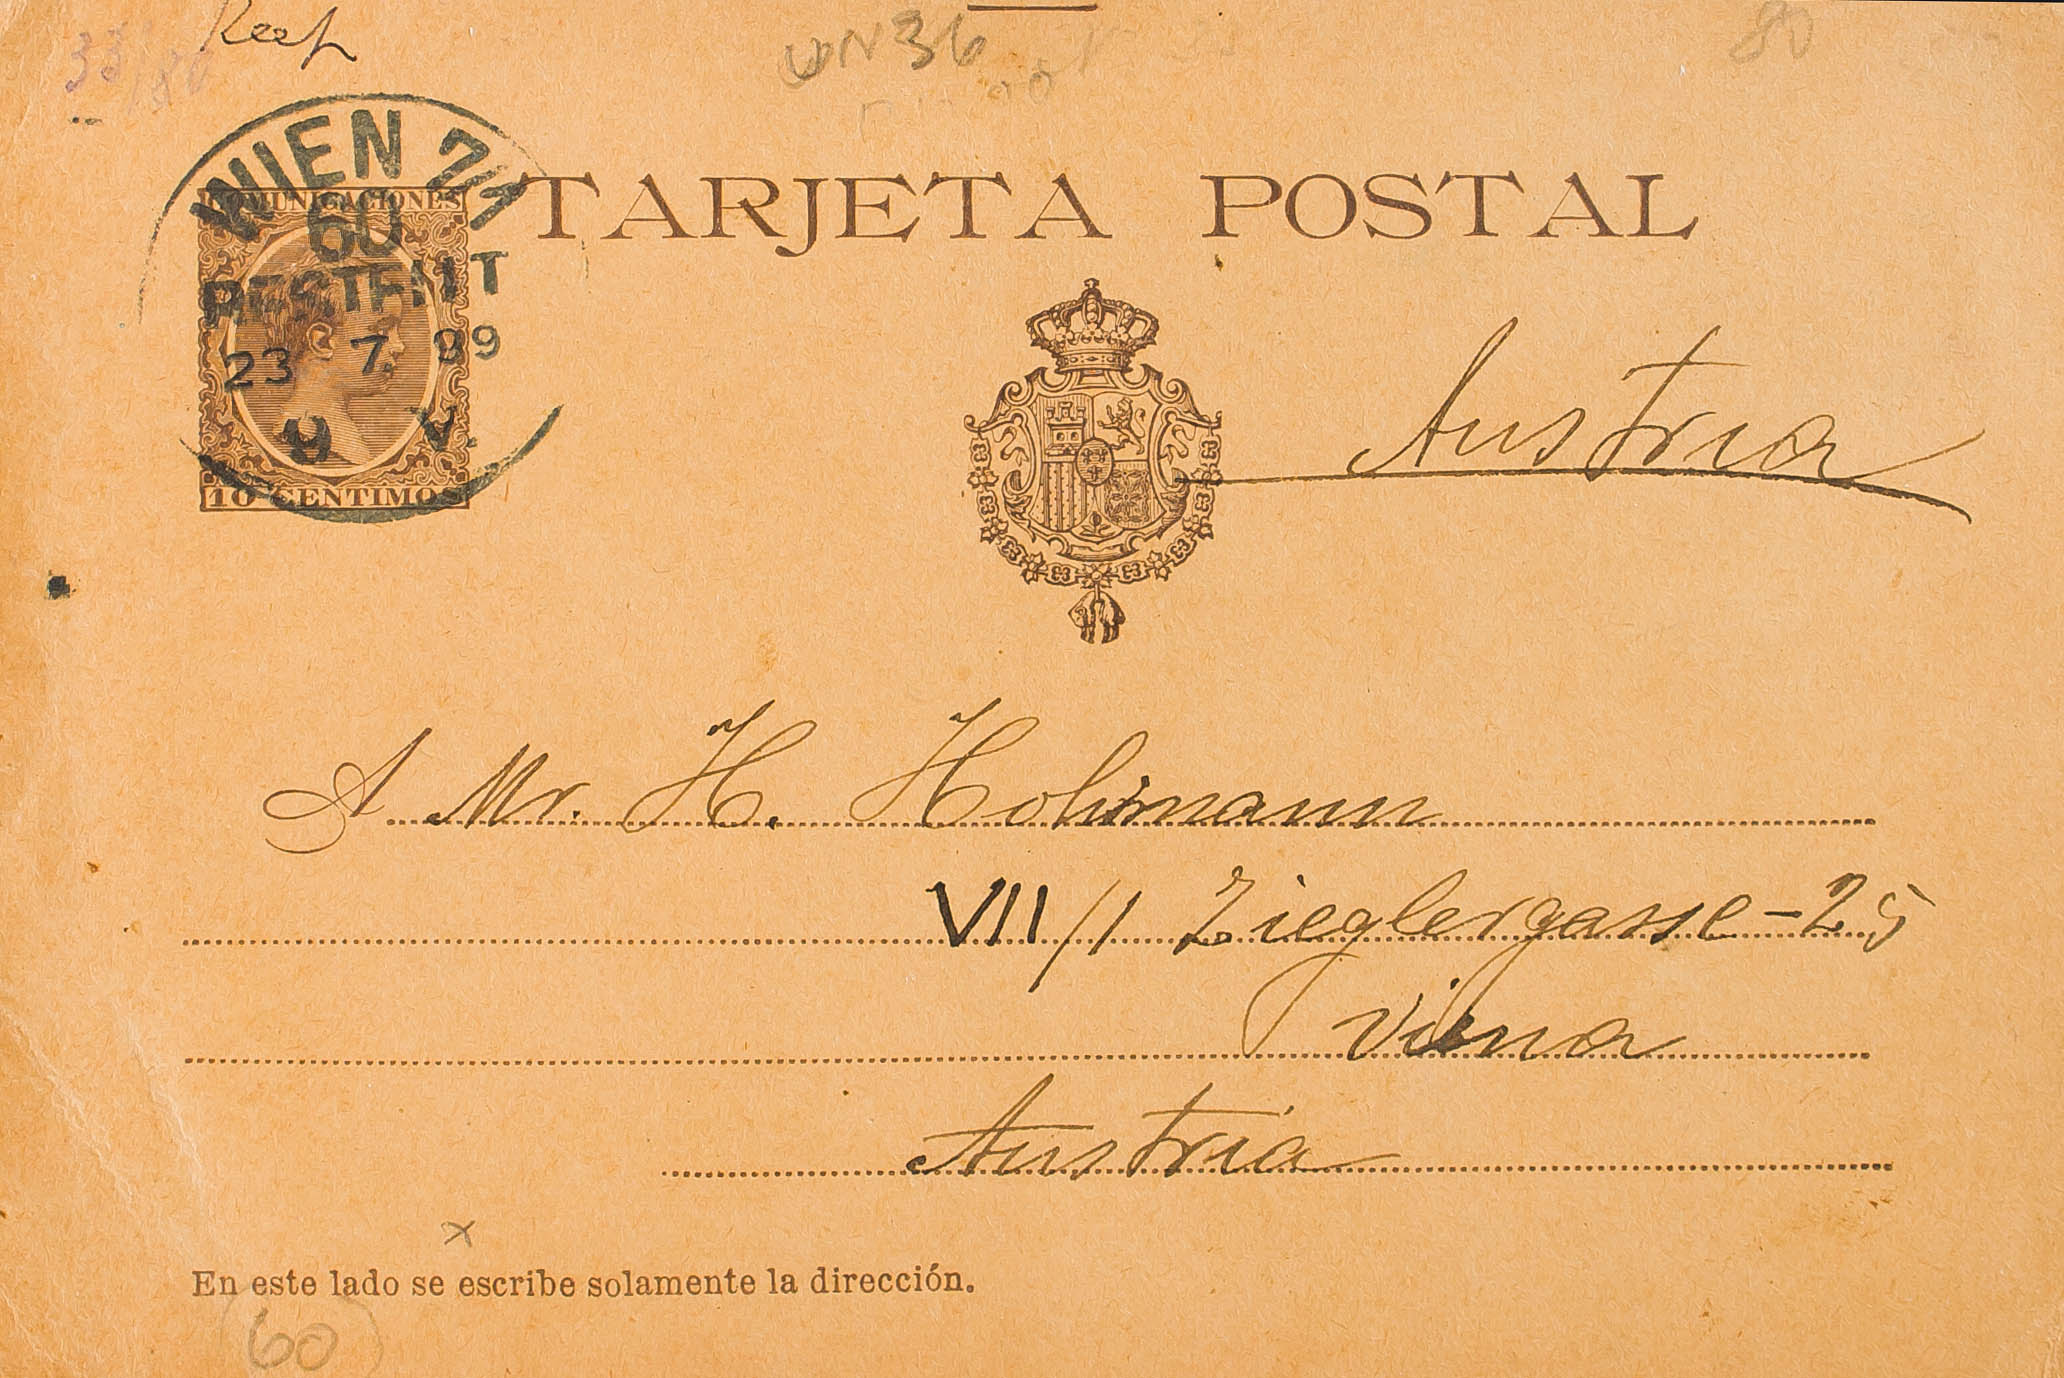 Reep
33/80
UN36
80
WIEN 7/1
60
BESTELLT
23 7. 99
9 V.
COMUNICACIONES
10 CENTIMOS
TARJETA POSTAL
Austria
A Mr. H. Hohmann
VII/1 Zieglergasse - 25
Viena
Austria
x
En este lado se escribe solamente la dirección.
60